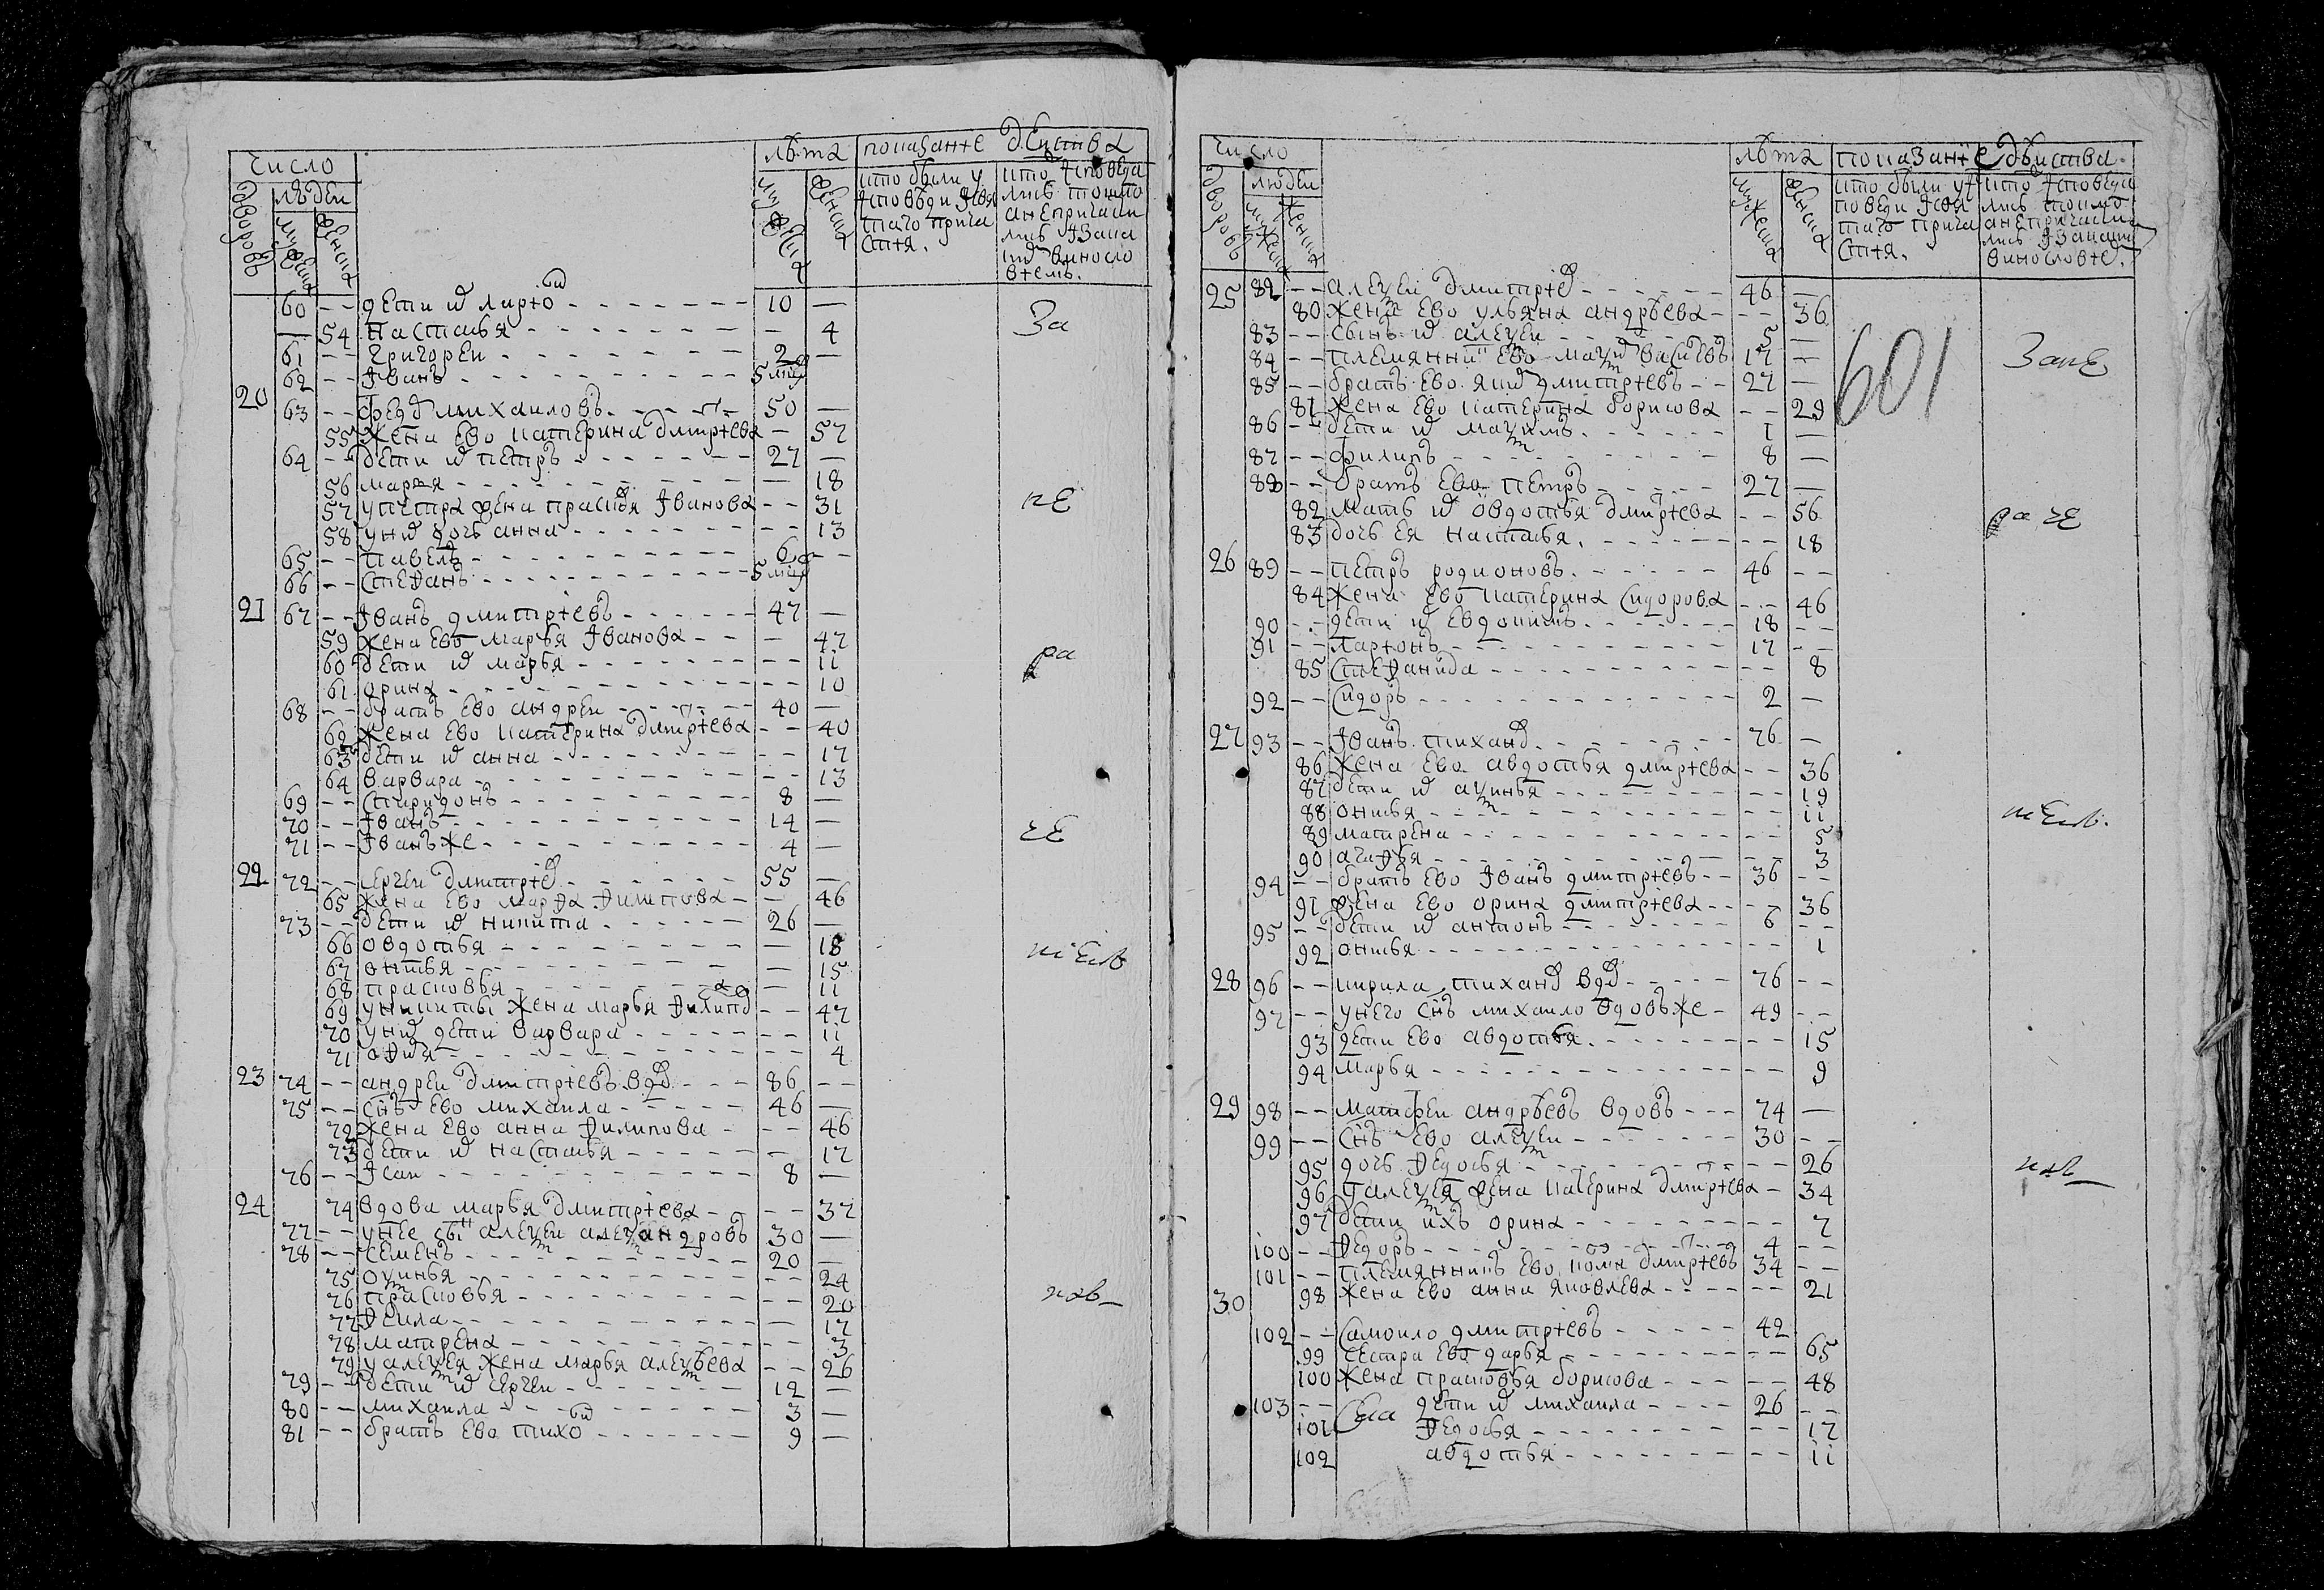 число
лѣта показанїе действа
дворовъ
людеи
мужеска
женска
мужеска
женска
кто были у исповѣди и свя таго прича стїя.
кто исповеда лись токмо а не причасти лись и за каки винослов вїемъ.
60 -- дети их ларио 10 —
— 54 настасья — 4
61 -- григореи 2 —
62 -- иванъ 5 —
20 63 -- федор михаиловъ 50 —
55 жена ево катерина дмитрїева — 57
64 -- дети их петръ 27 —
56 марья — 18
57 у петра жена прасковя иванова -- 31
58 у них дочь анна -- 13
65 -- павелъ 6 --
66 -- стефанъ 5
21 67 -- иванъ дмитрїевъ 47 —
59 жена ево марья иванова — 47
60 дети их марья -- 11
61 орина -- 10
68 -- братъ ево андреи 40 —
62 жена ево катерина дмитрїева -- 40
63 дети их анна -- 17
64 варвара -- 13
69 -- спиридонъ 8 —
70 -- иванъ 14 —
71 -- иванъ же 4 —
22 72 -- сергеи дмитрїев 55 —
65 жена ево марфа филипова — 46
73 -- дети их никита 26 —
66 овдотья — 18
67 онисья — 15
68 прасковья — 11
69 у никиты жена марья филипова -- 47
70 у них дети варвара -- 11
71 офимя — 4
23 74 -- андреи дмитрїевъ вдов 86 --
75 -- снъ ево михаила 46 —
72 жена ево анна филипова -- 46
73 дети их настасья — 17
76 -- исак 8 —
24 74 вдова марья дмитрїева -- 37
77 -- у нее сын алеѯеи алеѯандровъ 30 —
78 -- семенъ 20 —
75 оѯинья -- 24
76 прасковья -- 20
77 фекла — 17
78 матрена -- 3
79 у алеѯея жена марья алеѯѣева -- 26
79 -- дети их сергеи 12 —
80 -- михаила 3 —
81 -- братъ ево тихо 9 —
За
ке
ра
ге
число
лѣта показанїе дѣиства
дворовъ
людеи
мужеска
женска
мужеска
женска
кто были у и поведи и свя таго прича стїя.
кто исповеда лись токмо а не причасти лись и за каким винословїе.
25 82 -- алеѯеи дмитрїев 46 —
80 жена ево ульяна андрѣева -- 36
83 -- сынъ их алеѯеи 5 —
84 -- племянник ево маѯим васиевъ 17 —
85 -- братъ ево яков дмитрїевъ 27 —
81 жена ево катерина борисова -- 29
86 -- дети их маѯимъ 1 —
87 -- филипъ 8 —
88 -- братъ ево петръ 27 —
82 мать их овдотья дмитрїева -- 56
83 дочь ея настасья -- 18
26 89 -- петръ родионовъ 46 --
84 жена ево катерина сидорова -- 46
90 -- дети их евдокимъ 18 --
91 -- ларионъ 17 --
85 стефанида -- 8
92 -- сидоръ 2 —
27 93 -- иванъ тиханов 76 —
86 жена ево авдотья дмитрїева -- 36
87 дети их аѯинья -- 19
88 онисья -- 11
89 матрена -- 5
90 агафья -- 3
94 -- братъ ево иванъ дмитрїевъ 36 --
91 жена ево орина дмитрїева -- 36
95 -- дети их антонъ 6 --
92 онисья -- 1
28 96 -- кирила тиханов вдов 76 --
97 -- у него снъ михаило вдовъ же 49 --
93 дети ево авдотья -- 15
94 марья -- 9
29 98 -- матфеи андрѣевъ вдовъ 74 —
99 -- снъ ево алеѯеи 30 --
95 дочь федосья -- 26
96 у алеѯея жена катерина дмитрїева — 34
97 дети ихъ орина -- 7
100 -- федоръ 4 --
101 -- племянникъ ево козма дмитрїевъ 34 --
98 жена ево анна яковлева -- 21
30 102 -- самоило дмитрїевъ 42
99 сестра ево дарья -- 65
100 жена прасковья борисова -- 48
103 -- дети их михаила 26 --
101 федосья -- 17
102 авдотья -- 11
601
ра ге